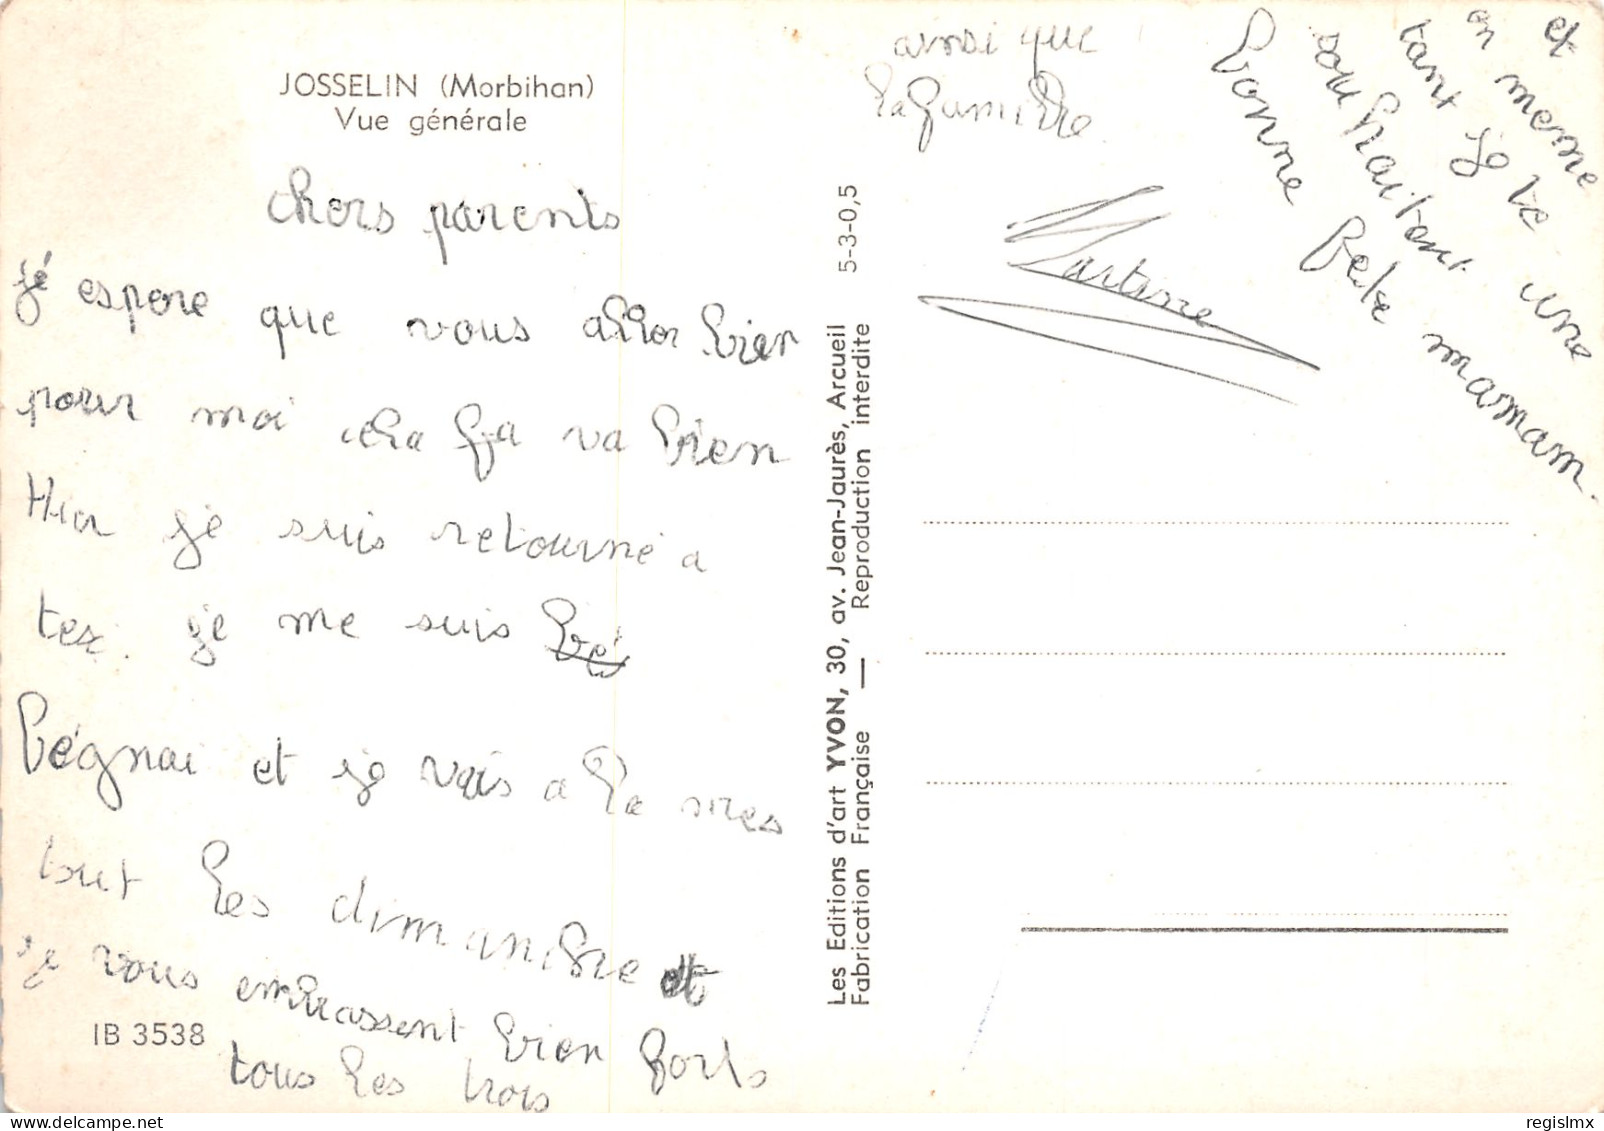 JOSSELIN (Morbihan)
Vue générale
chers parents
jé espere que vous aller bien
pour moi cela ça va bien
Hier je suis retourné a
je me suis bé
bégnai et je vais a la mes
tout les dimanche et
je vous embrassent bien forts
tous les trois
IB 3538
Les Editions d'art YVON, 30, av. Jean-Jaurès, Arcueil
Fabrication Française — Reproduction interdite
5-3-0,5
ainsi que
la famille
Martine
et
en meme
tant je te
souhaitant une
bonne fete mamam.
regislmx